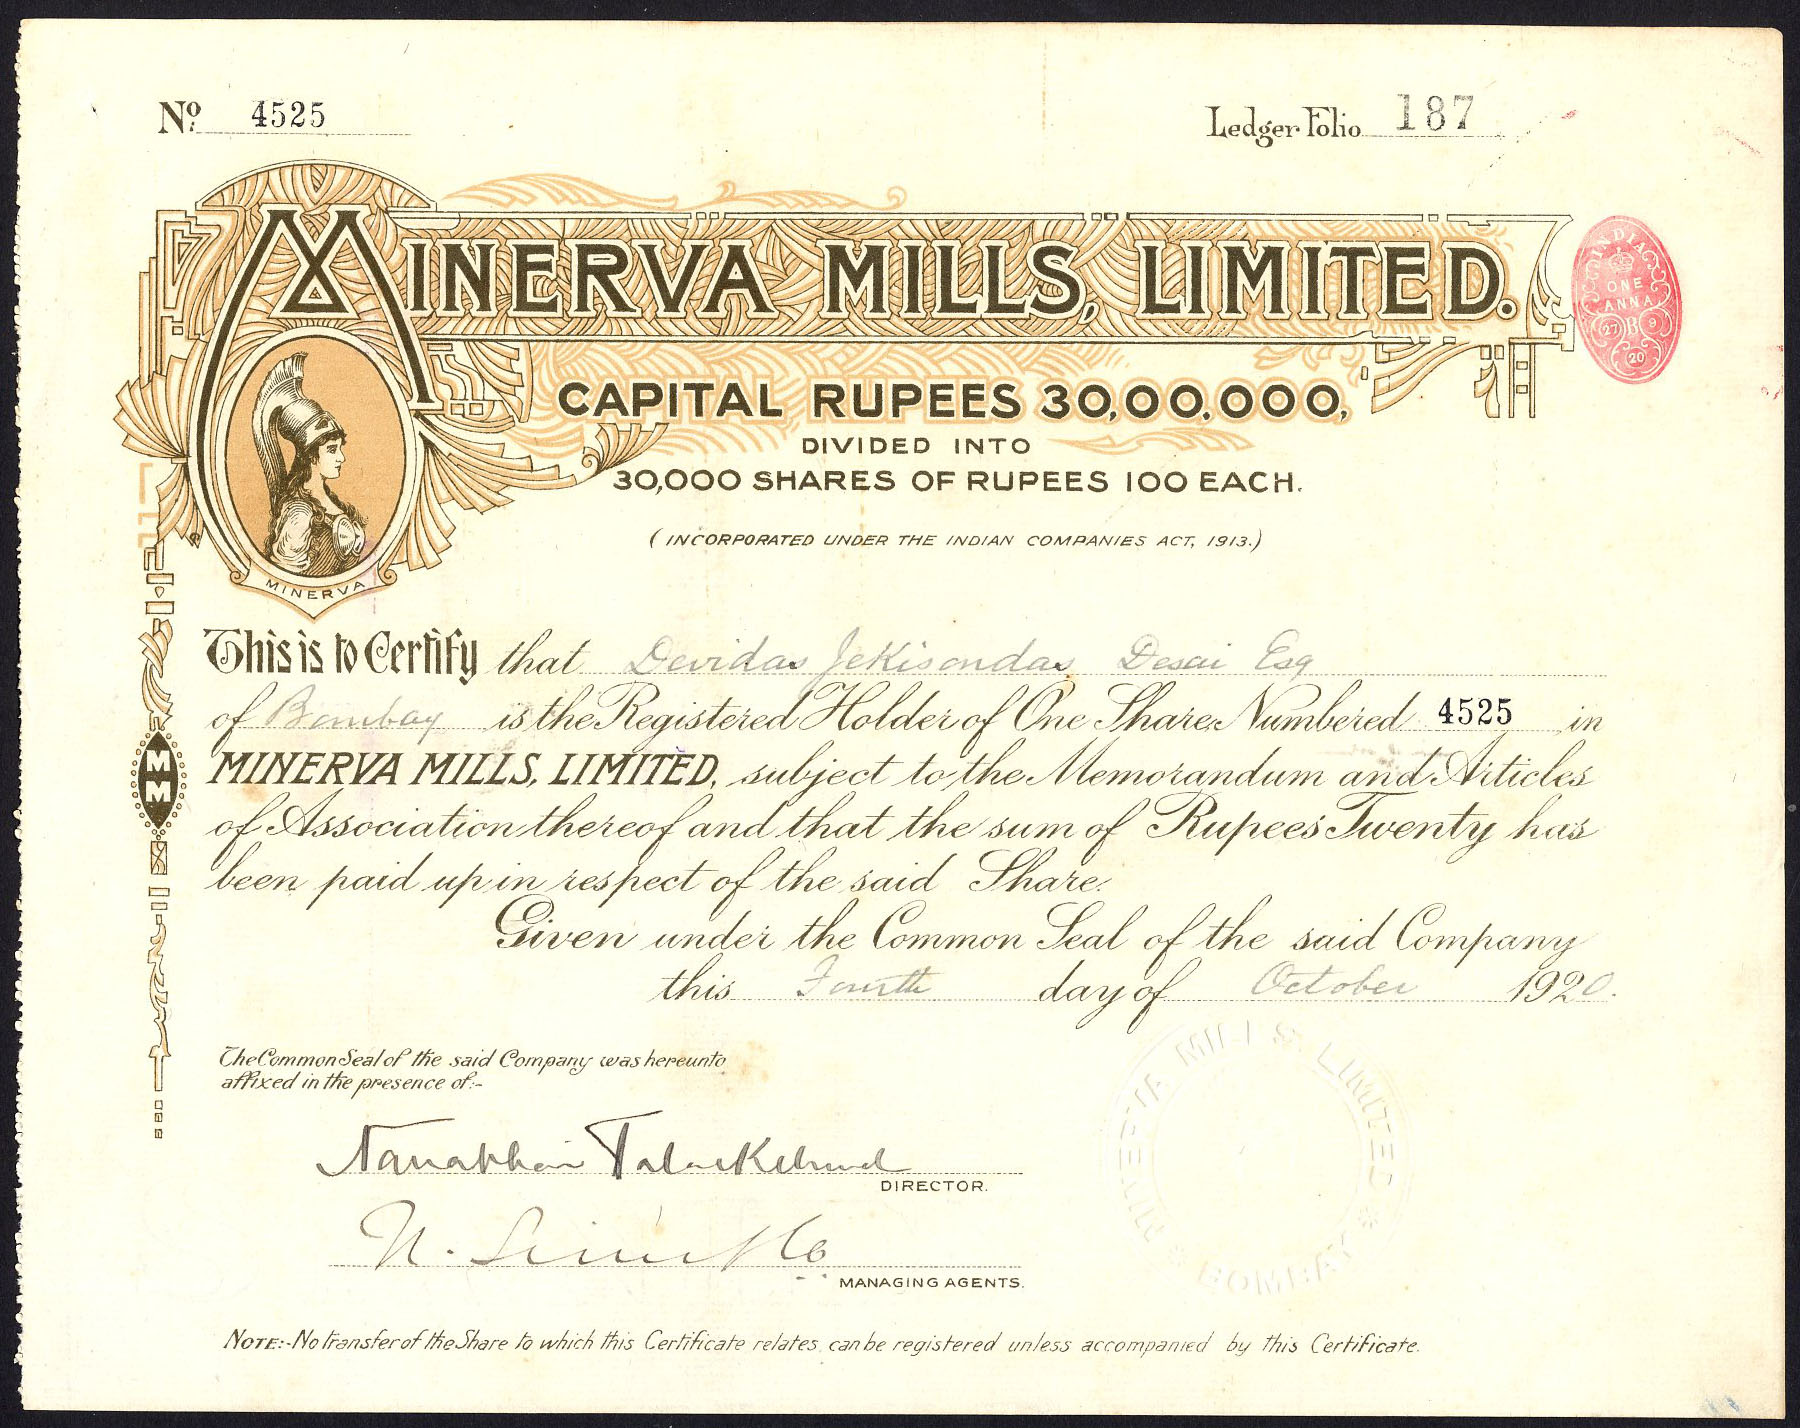 No. 4525
Ledger Folio 187
MINERVA MILLS, LIMITED.
INDIA
ONE
ANNA
27 B 9
20
CAPITAL RUPEES 30,00,000,
DIVIDED INTO
30,000 SHARES OF RUPEES 100 EACH.
(INCORPORATED UNDER THE INDIAN COMPANIES ACT, 1913.)
MINERVA
This is to Certify that Devidas Jekisondas Desai Esq
of Bombay is the Registered Holder of One Share Numbered 4525 in
MINERVA MILLS, LIMITED, subject to the Memorandum and Articles
MM
of Association thereof and that the sum of Rupees Twenty has
been paid up in respect of the said Share.
Given under the Common Seal of the said Company
this Fourth day of October 1920.
The Common Seal of the said Company was hereunto
affixed in the presence of:-
MINERVA MILLS LIMITED * BOMBAY *
DIRECTOR.
N.
MANAGING AGENTS.
NOTE:-No transfer of the Share to which this Certificate relates can be registered unless accompanied by this Certificate.